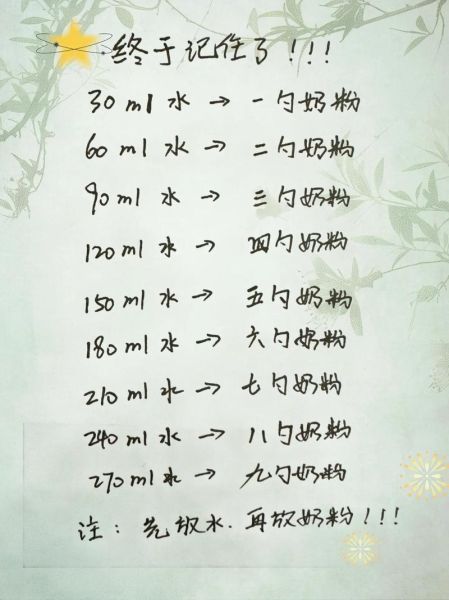 终于记住了!!!
30ml 水 → 一勺奶粉
60ml 水 → 二勺奶粉
90ml 水 → 三勺奶粉
120ml 水 → 四勺奶粉
150ml 水 → 五勺奶粉
180ml 水 → 六勺奶粉
210ml 水 → 七勺奶粉
240ml 水 → 八勺奶粉
270ml 水 → 九勺奶粉
注:先放水.再放奶粉!!!